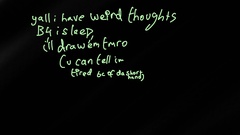 yall i have weird thoughts
B4 i sleep
i'll draw em tmro
(u can tell im
tired bc of da short
hand)